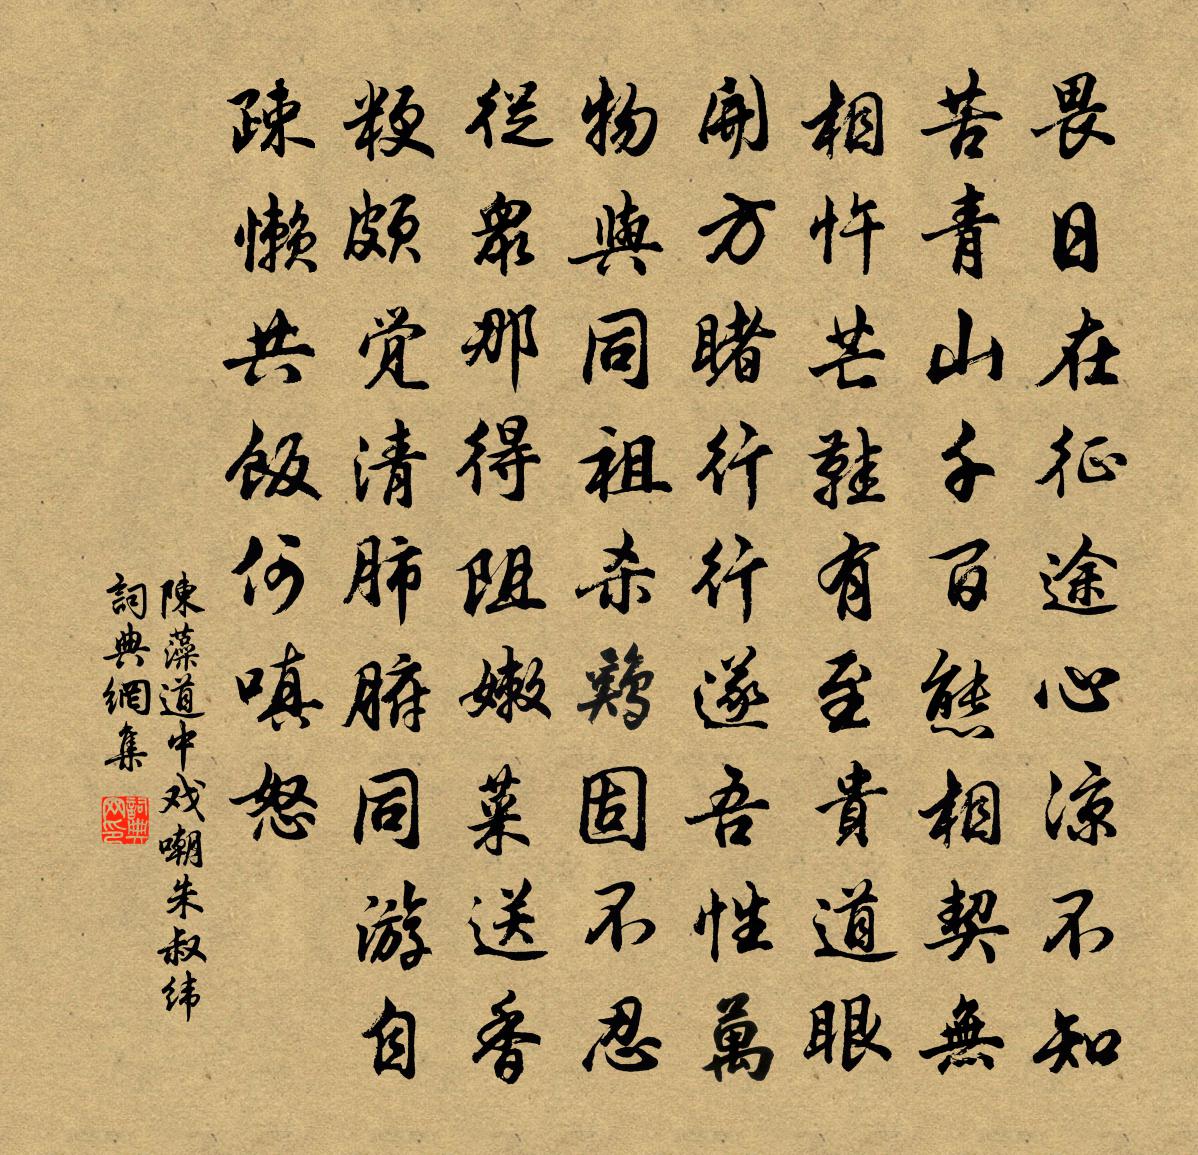 畏日在征途心涼不知
苦青山千百態相契無
相忤芒鞋有至貴道眼
開方睹行行遂吾性萬
物與同祖杀鷄固不忍
從衆那得阻嫩菜送香
粳頗觉清肺腑同游自
疎懶共飯何嗔怒
陳藻道中戏嘲朱叔纬
詞典網集
詞典网印